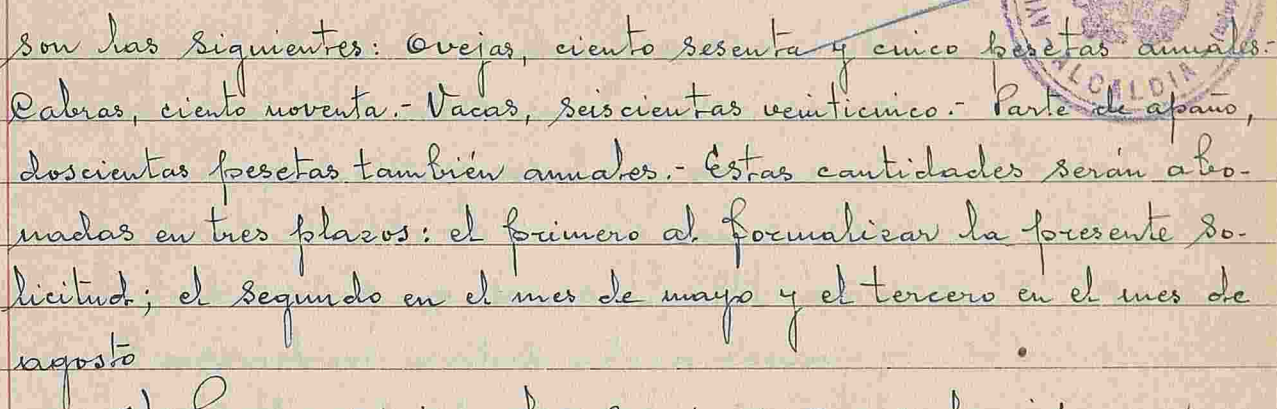 son las siguientes: Ovejas, ciento sesenta y cinco pesetas anuales.-
Cabras, ciento noventa.- Vacas, seiscientas veinticinco.- Parte de apaño,
doscientas pesetas también anuales.- Estas cantidades serán abo-
nadas en tres plazos: el primero al formalizar la presente so-
licitud; el segundo en el mes de mayo y el tercero en el mes de
agosto
ALCALDIA